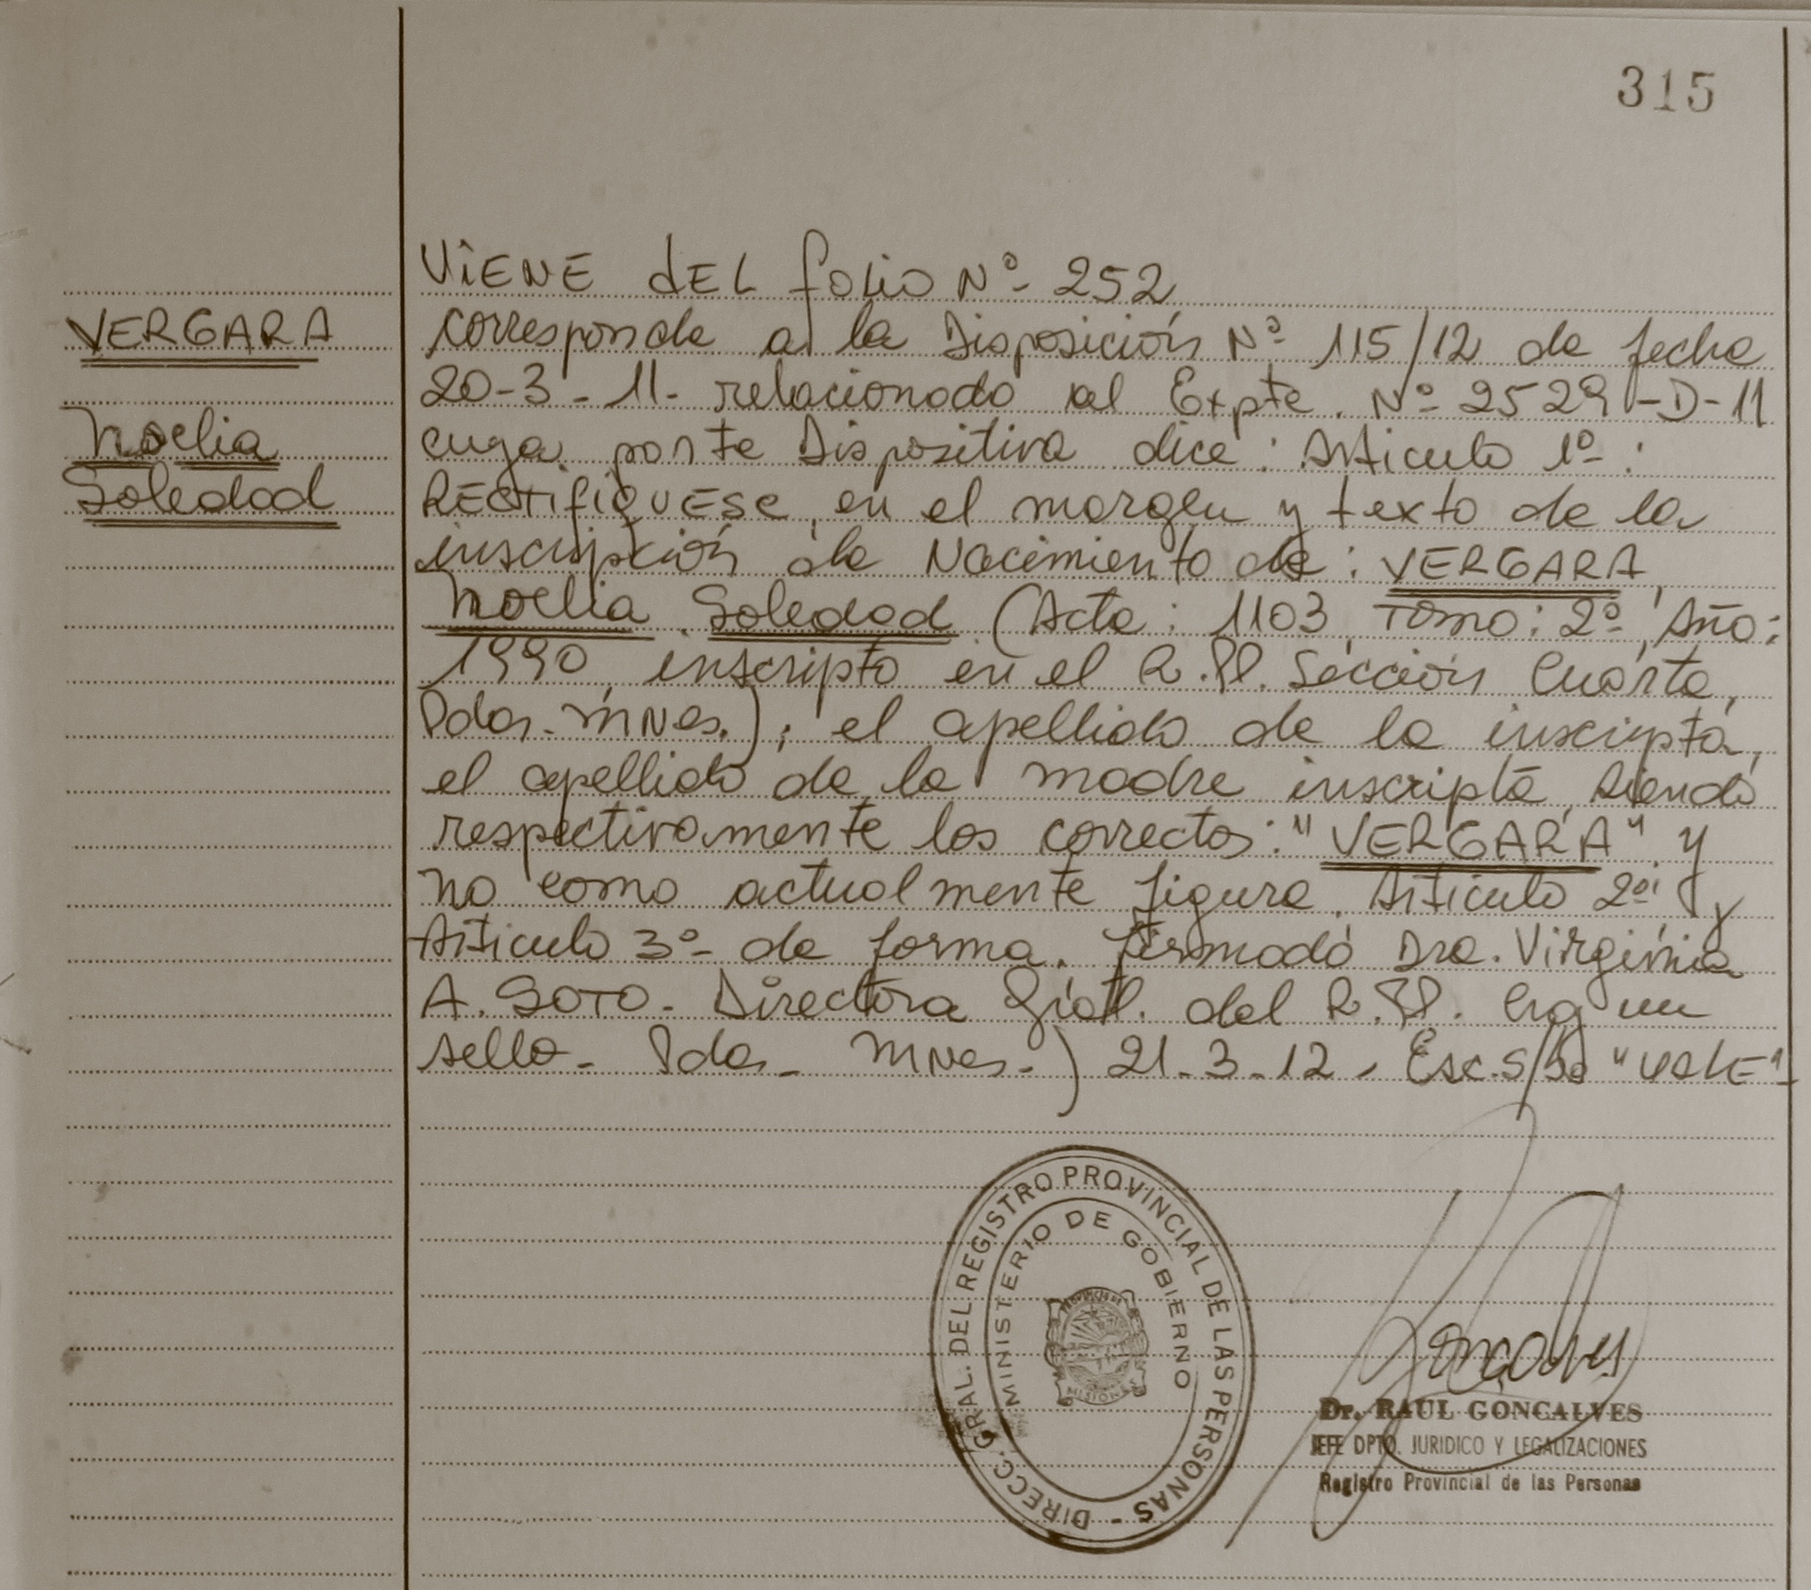 315
VIENE dEL folio Nº 252
VERGARA
corresponde a la Disposición Nº 115/12 de fecha
20-3-11- relacionado al Expte. Nº 2529-D-11
Noelia
cuya parte Dispositiva dice: Articulo 1º:
Soledad
RECTIFIQUESE, en el margen y texto de la
inscripción de Nacimiento de: VERGARA,
Noelia Soledad (Acta: 1103, Tomo: 2º, Año:
1990, inscripta en el R.P. Sección Cuarta,
Pdas. MNes.); el apellido de la inscripta,
el apellido de la madre inscripta, siendo
respectivamente los correctos: "VERGARA" y
no como actualmente figura. Articulo 2º y
Articulo 3º de forma. firmado Dra. Virginia
A. SOTO- Directora Gral. del R.P. Hay un
sello- Pdas- MNes-) 21-3-12, Esc. S/Bo "VALE"-
DIRECC. GRAL. DEL REGISTRO PROVINCIAL DE LAS PERSONAS -
MINISTERIO DE GOBIERNO
PROVINCIA DE
MISIONES
Dr. RAUL GONCALVES
JEFE DPTO. JURIDICO Y LEGALIZACIONES
Registro Provincial de las Personas